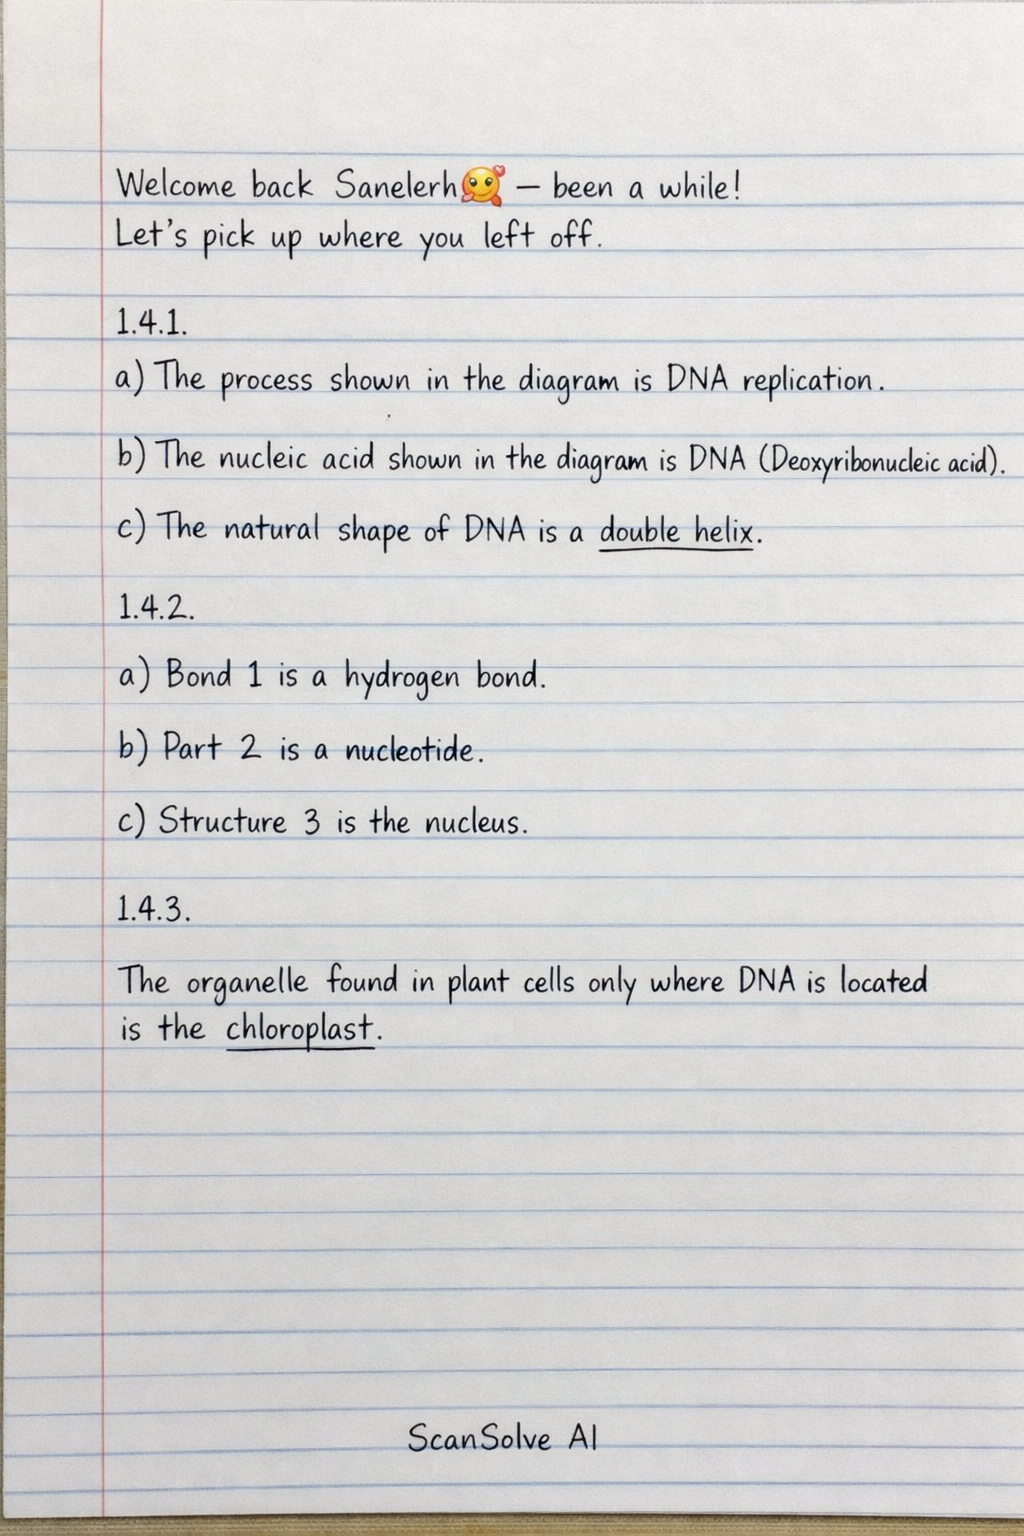 Welcome back Sanelerh🥰 — been a while!
Let's pick up where you left off.
1.4.1.
a) The process shown in the diagram is DNA replication.
b) The nucleic acid shown in the diagram is DNA (Deoxyribonucleic acid).
c) The natural shape of DNA is a double helix.
1.4.2.
a) Bond 1 is a hydrogen bond.
b) Part 2 is a nucleotide.
c) Structure 3 is the nucleus.
1.4.3.
The organelle found in plant cells only where DNA is located
is the chloroplast.
ScanSolve AI